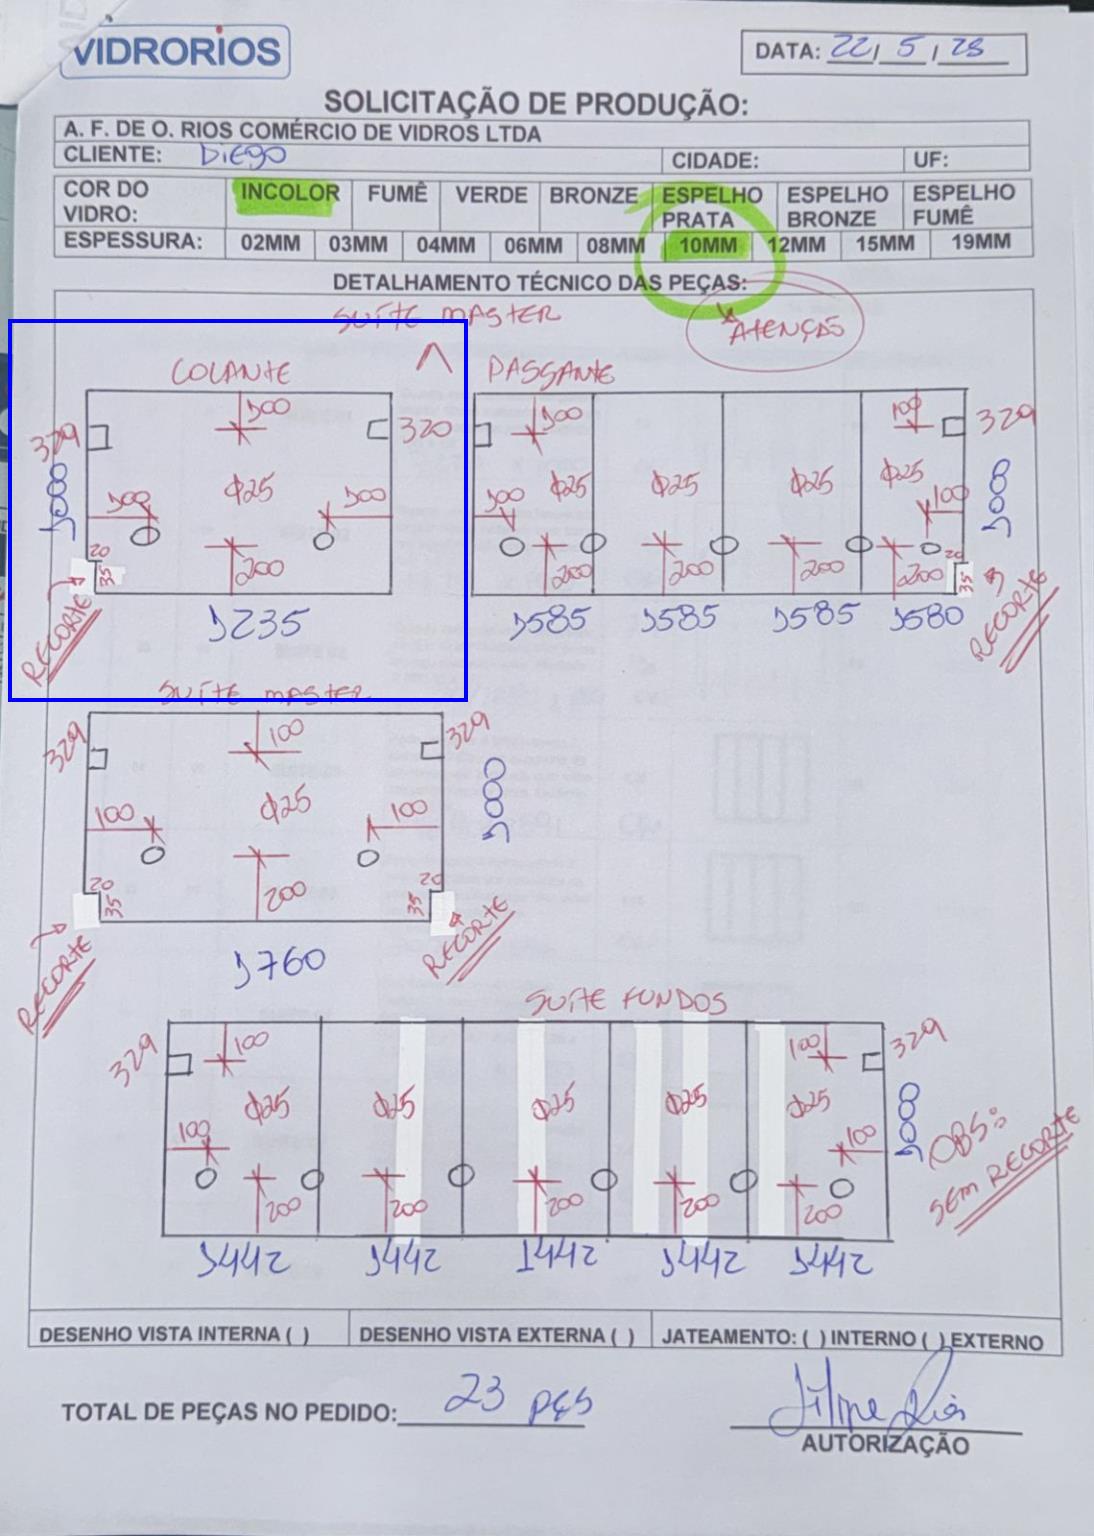 VIDRORIOS
DATA: 22/5/25
SOLICITAÇÃO DE PRODUÇÃO:
A. F. DE O. RIOS COMÉRCIO DE VIDROS LTDA
CLIENTE: DiEgO CIDADE: UF:
COR DO VIDRO: INCOLOR FUMÊ VERDE BRONZE ESPELHO PRATA ESPELHO BRONZE ESPELHO FUMÊ
ESPESSURA: 02MM 03MM 04MM 06MM 08MM 10MM 12MM 15MM 19MM
DETALHAMENTO TÉCNICO DAS PEÇAS:
SUÍTE MASTER
ATENÇÃO
COLANTE
PASSANTE
100 100 100
329 320 329
Φ25 Φ25 Φ25 Φ25 Φ25
1000 100 100 100 100 1000
20 35 200 200 200 200 200 20 35
RECORTE 1235 1585 1585 1585 1580 RECORTE
SUÍTE MASTER
329 100 329
Φ25 1000
100 100
20 35 200 20 35
RECORTE 1760 RECORTE
SUÍTE FUNDOS
329 100 100 329
Φ25 Φ25 Φ25 Φ25 Φ25 1000
100 100 OBS:
200 200 200 200 200 SEM RECORTE
1442 1442 1442 1442 1442
DESENHO VISTA INTERNA ( ) DESENHO VISTA EXTERNA ( ) JATEAMENTO: ( ) INTERNO ( ) EXTERNO
TOTAL DE PEÇAS NO PEDIDO: 23 PÇS
Filipe Rios
AUTORIZAÇÃO